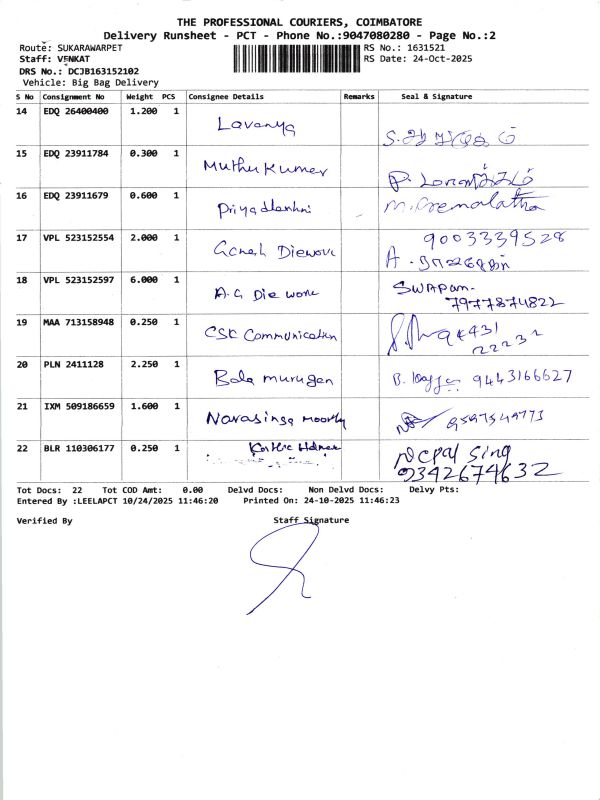 THE PROFESSIONAL COURIERS, COIMBATORE
Delivery Runsheet - PCT - Phone No.:9047080280 - Page No.:2
Route: SUKARAWARPET
RS No.: 1631521
Staff: VENKAT
RS Date: 24-Oct-2025
DRS No.: DCJB163152102
Vehicle: Big Bag Delivery
S No Consignment No Weight PCS Consignee Details Remarks Seal & Signature
14 EDQ 26400400 1.200 1 Lavanya
15 EDQ 23911784 0.300 1 Muthu Kumar
16 EDQ 23911679 0.600 1 Priyadharshni M. Premalatha
17 VPL 523152554 2.000 1 Ganesh Diework 9003339528
18 VPL 523152597 6.000 1 A.G Die work SWAPAN.
7977874822
19 MAA 713158948 0.250 1 CSK Communication
20 PLN 2411128 2.250 1 Bala murugan 9443166627
21 IXM 509186659 1.600 1 Narasinga moorthy
22 BLR 110306177 0.250 1 Nepal Sing
9342674632
Tot Docs: 22 Tot COD Amt: 0.00 Delvd Docs: Non Delvd Docs: Delvy Pts:
Entered By :LEELAPCT 10/24/2025 11:46:20 Printed On: 24-10-2025 11:46:23
Verified By Staff Signature